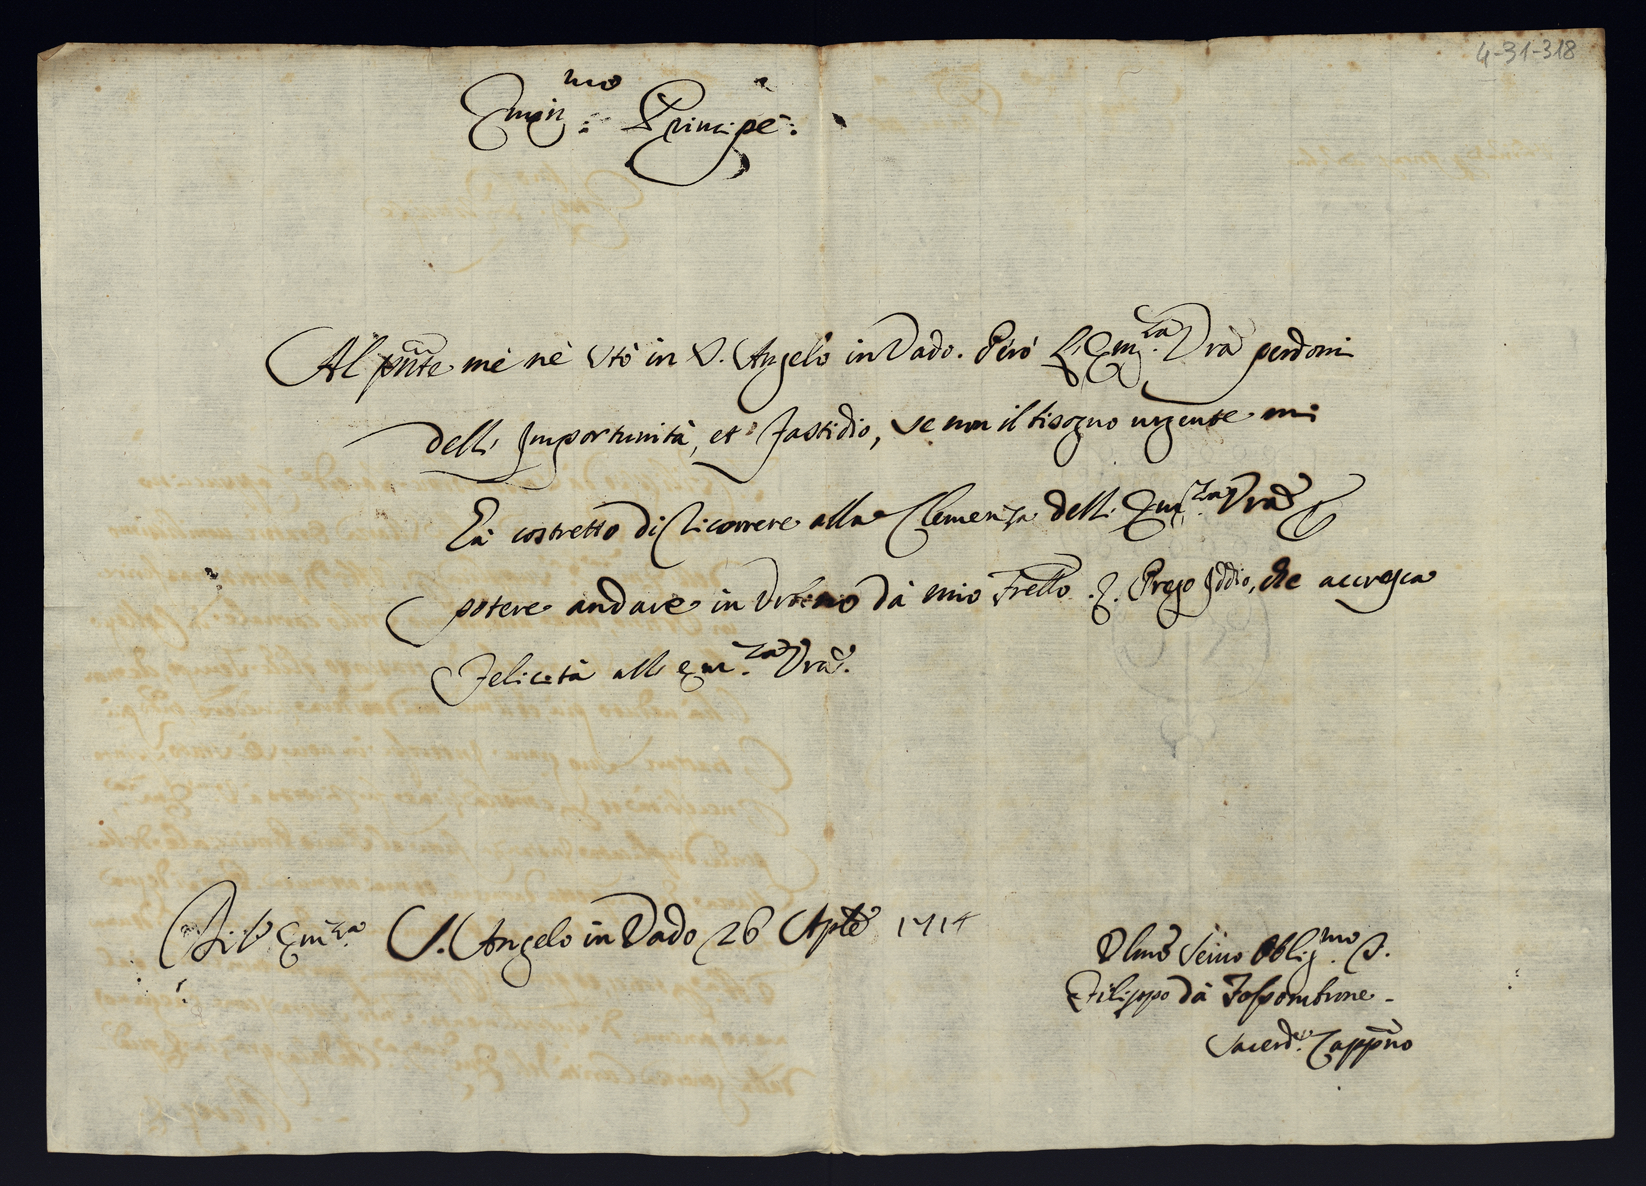 4-31-318
Emin.mo Principe.
Al pnte me nè stò in S. Angelo in Vado. Però L'Em.za Vra perdoni
dell'Importunità, et fastidio, se non il bisogno urgente mi
fà costretto di ricorrere alla Clemenza dell'Em.za Vra
potere andare in Urbino dà mio Frello. Prego Iddio, che accresca
felicità all'Em.za Vra.
Di V. Em.za S. Angelo in Vado 26 Aple 1714
Serno Oblig.mo S.
Filippo dà Fossombrone
Sacerd.e Cappno